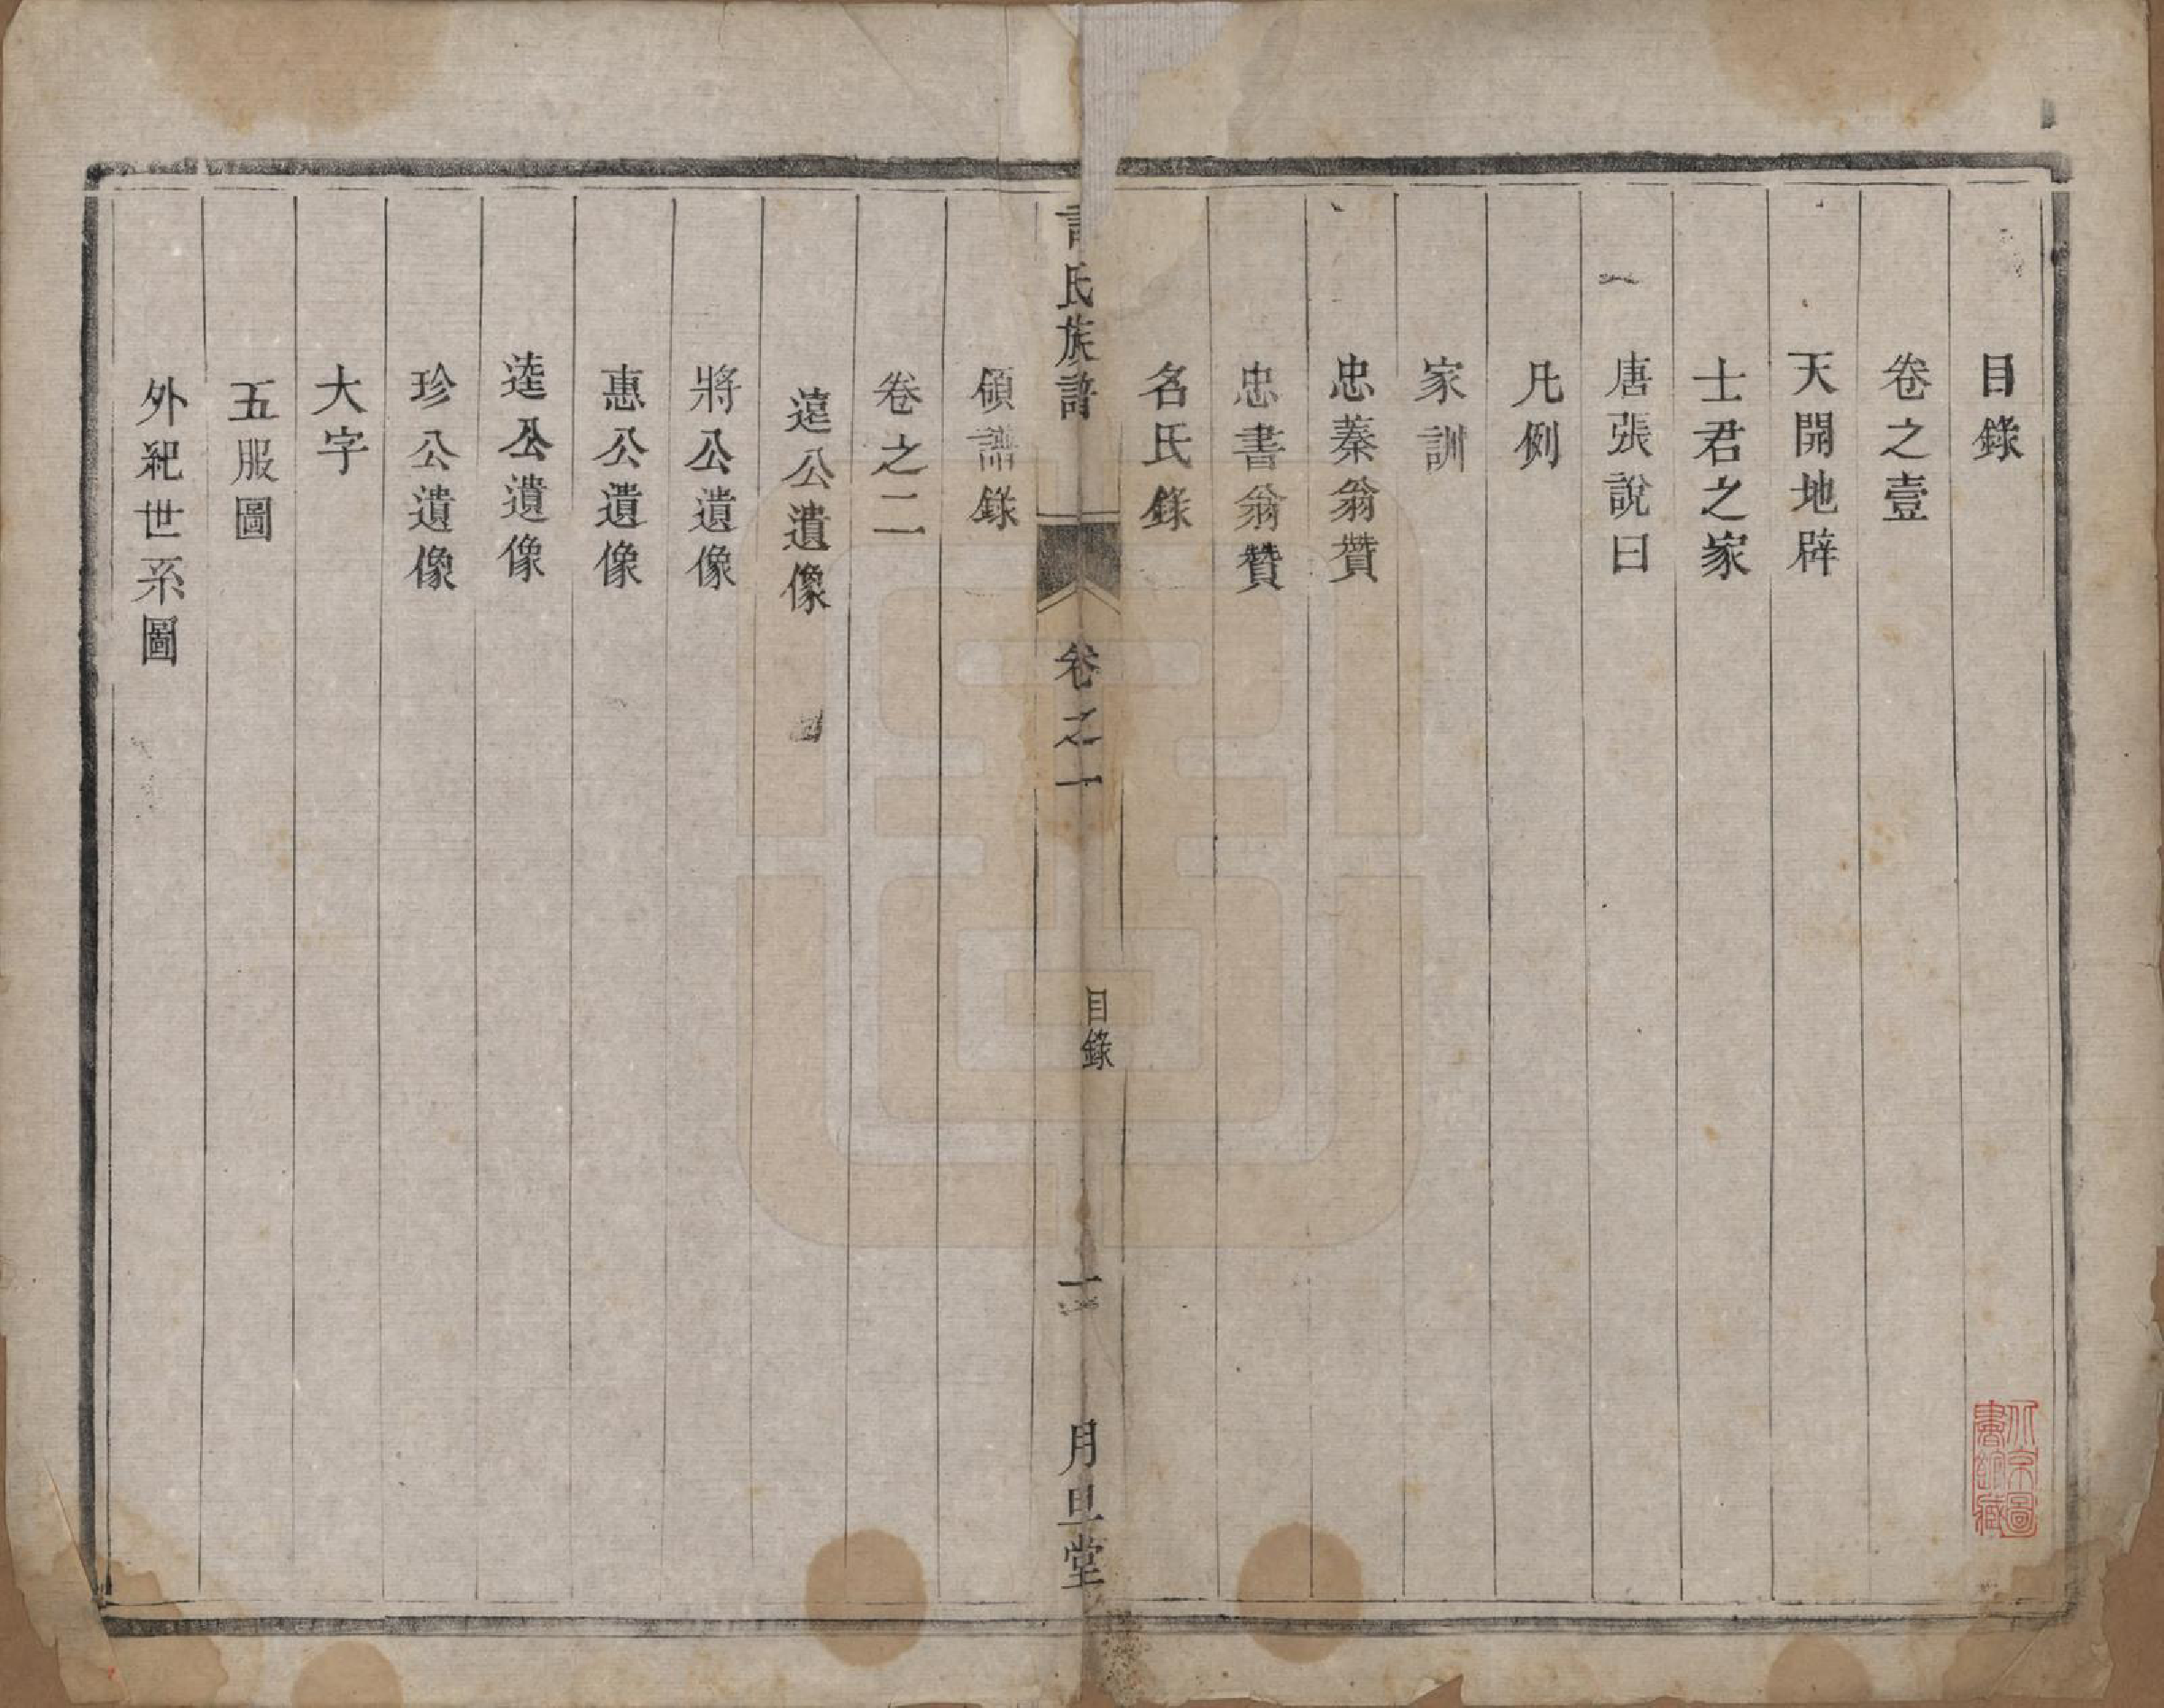 目錄
卷之壹
天開地辟
士君之家
唐張說曰
凡例
家訓
忠蓁翁贊
忠書翁贊
名氏錄
氏族譜 卷之一 目錄 一 月旦堂
領譜錄
卷之二
遠公遺像
將公遺像
惠公遺像
逵公遺像
珍公遺像
大字
五服圖
外紀世系圖